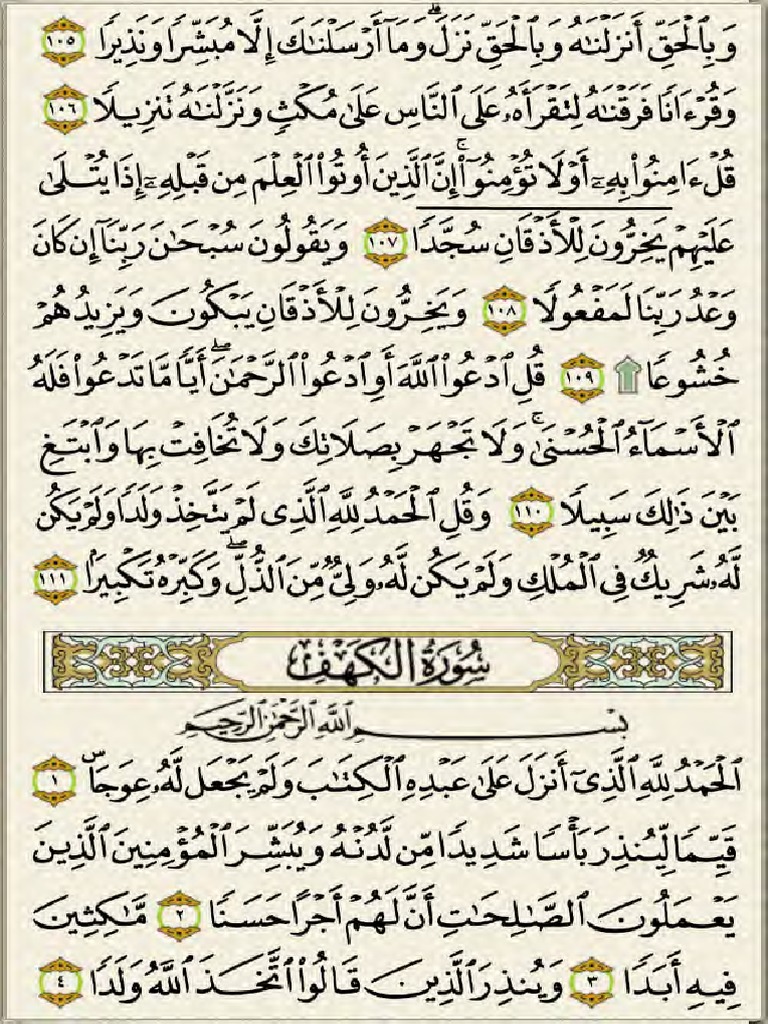 وَبِٱلْحَقِّ أَنزَلْنَٰهُ وَبِٱلْحَقِّ نَزَلَ ۗ وَمَآ أَرْسَلْنَٰكَ إِلَّا مُبَشِّرًا وَنَذِيرًا ١٠٥
وَقُرْءَانًا فَرَقْنَٰهُ لِتَقْرَأَهُۥ عَلَى ٱلنَّاسِ عَلَىٰ مُكْثٍ وَنَزَّلْنَٰهُ تَنزِيلًا ١٠٦
قُلْ ءَامِنُوا۟ بِهِۦٓ أَوْ لَا تُؤْمِنُوٓا۟ ۚ إِنَّ ٱلَّذِينَ أُوتُوا۟ ٱلْعِلْمَ مِن قَبْلِهِۦٓ إِذَا يُتْلَىٰ
عَلَيْهِمْ يَخِرُّونَ لِلْأَذْقَانِ سُجَّدًا ١٠٧ وَيَقُولُونَ سُبْحَٰنَ رَبِّنَآ إِن كَانَ
وَعْدُ رَبِّنَا لَمَفْعُولًا ١٠٨ وَيَخِرُّونَ لِلْأَذْقَانِ يَبْكُونَ وَيَزِيدُهُمْ
خُشُوعًا ۩ ١٠٩ قُلِ ٱدْعُوا۟ ٱللَّهَ أَوِ ٱدْعُوا۟ ٱلرَّحْمَٰنَ ۖ أَيًّا مَّا تَدْعُوا۟ فَلَهُ
ٱلْأَسْمَآءُ ٱلْحُسْنَىٰ ۚ وَلَا تَجْهَرْ بِصَلَاتِكَ وَلَا تُخَافِتْ بِهَا وَٱبْتَغِ
بَيْنَ ذَٰلِكَ سَبِيلًا ١١٠ وَقُلِ ٱلْحَمْدُ لِلَّهِ ٱلَّذِى لَمْ يَتَّخِذْ وَلَدًا وَلَمْ يَكُن
لَّهُۥ شَرِيكٌ فِى ٱلْمُلْكِ وَلَمْ يَكُن لَّهُۥ وَلِىٌّ مِّنَ ٱلذُّلِّ ۖ وَكَبِّرْهُ تَكْبِيرًۢا ١١١
سُورَةُ الكَهْفِ
بِسْمِ ٱللَّهِ ٱلرَّحْمَٰنِ ٱلرَّحِيمِ
ٱلْحَمْدُ لِلَّهِ ٱلَّذِىٓ أَنزَلَ عَلَىٰ عَبْدِهِ ٱلْكِتَٰبَ وَلَمْ يَجْعَل لَّهُۥ عِوَجَا ۜ ١
قَيِّمًا لِّيُنذِرَ بَأْسًا شَدِيدًا مِّن لَّدُنْهُ وَيُبَشِّرَ ٱلْمُؤْمِنِينَ ٱلَّذِينَ
يَعْمَلُونَ ٱلصَّٰلِحَٰتِ أَنَّ لَهُمْ أَجْرًا حَسَنًا ٢ مَّٰكِثِينَ
فِيهِ أَبَدًا ٣ وَيُنذِرَ ٱلَّذِينَ قَالُوا۟ ٱتَّخَذَ ٱللَّهُ وَلَدًا ٤